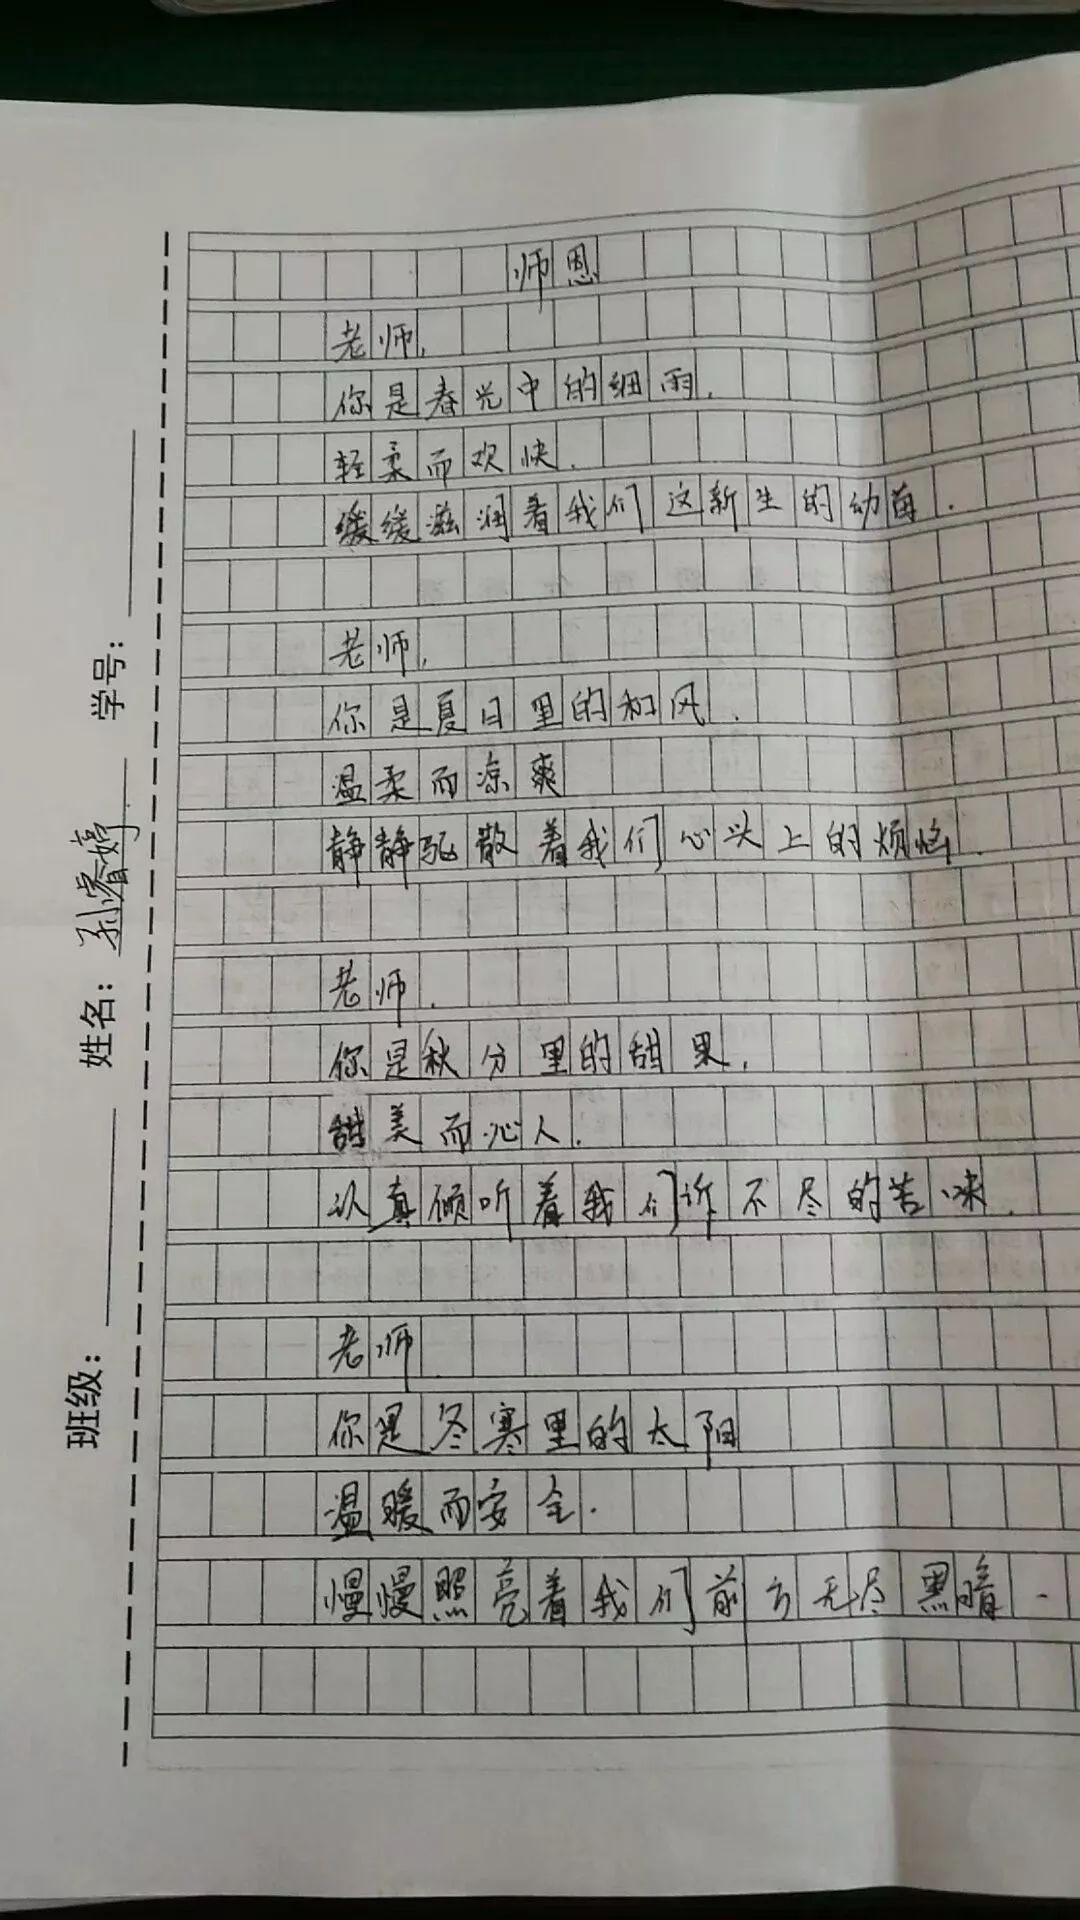 师恩
老师,
你是春光中的细雨,
轻柔而欢快,
缓缓滋润着我们这新生的幼苗.
老师,
你是夏日里的和风,
温柔而凉爽
静静驱散着我们心头上的烦恼.
老师,
你是秋分里的甜果,
甜美而沁人,
认真倾听着我们诈不尽的苦味.
老师
你是冬寒里的太阳
温暖而安全.
慢慢照亮着我们前方无尽黑暗.
班级: 姓名: 孙睿婷 学号: